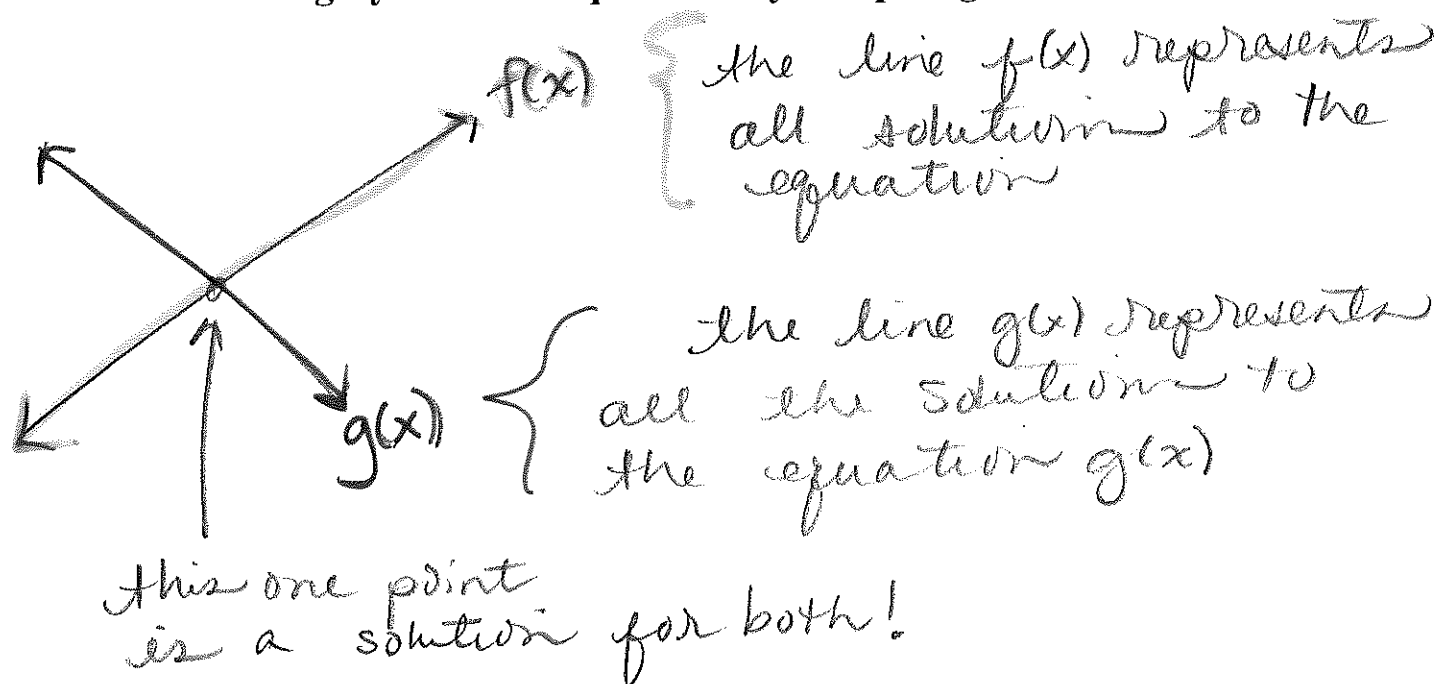 f(x)
the line f(x) represents
all solution to the
equation
g(x)
the line g(x) represents
all the solution to
the equation g(x)
this one point
is a solution for both!